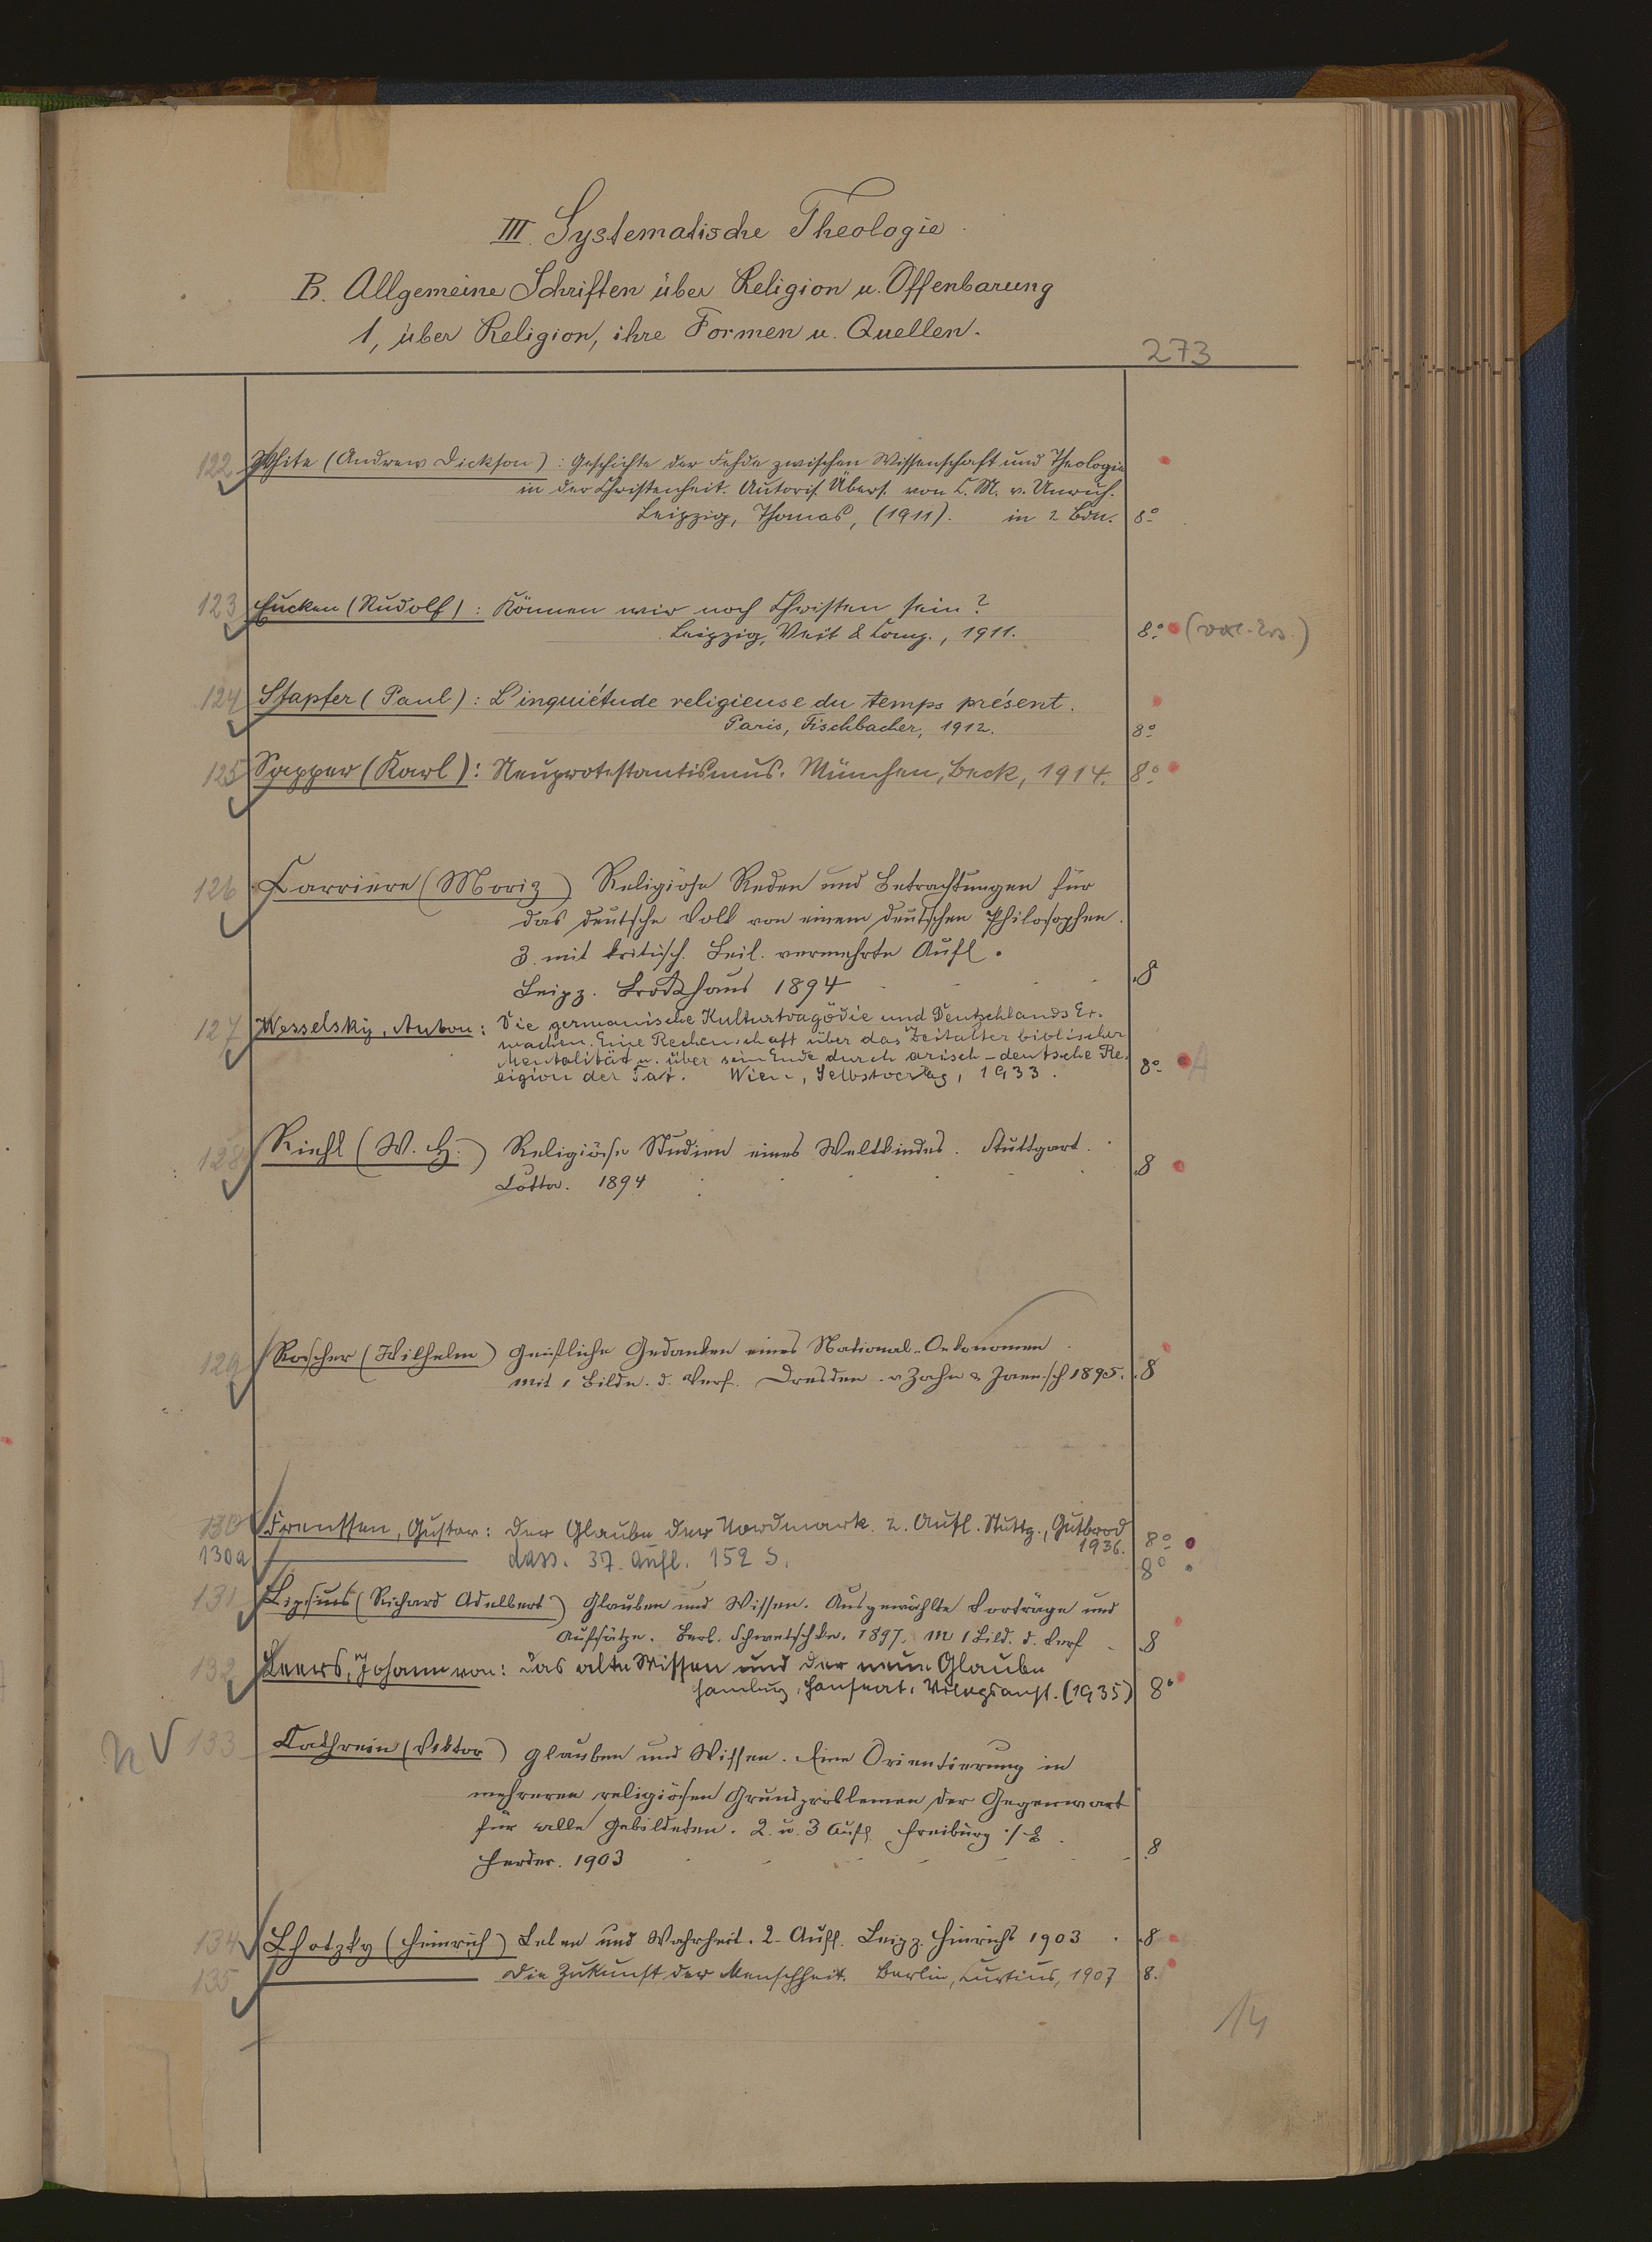 III. Systematische Theologie.
B. Allgemeine Schriften über Religion u. Offenbarung
1, über Religion, ihre Formen u. Quellen.
273
122 White (Andrew Dickson): Geschichte der Fehde zwischen Wissenschaft und Theologie
in der Christenheit. Autoris. Übers. von C. M. v. Unruh.
Leipzig, Thomas, (1911). in 2 Bdn. 8°
123 Eucken (Rudolf): Können wir noch Christen sein?
Leipzig, Veit & Comp., 1911. 8°
124 Stapfer (Paul): L'inquiétude religieuse du temps présent.
Paris, Fischbacher, 1912. 8°
125 Sapper (Karl): Neuprotestantismus. München, Beck, 1914. 8°
126 Carriere (Moriz) Religiöse Reden und Betrachtungen für
das deutsche Volk von einem deutschen Philosophen.
3. mit kritisch. Beil. vermehrte Aufl.
Leipz. Brockhaus 1894 8
127 Wesselsky, Anton: Die germanische Kulturtragödie und Deutschlands Er-
wachen. Eine Rechenschaft über das Zeitalter biblischer
Mentalität u. über sein Ende durch arisch-deutsche Re-
ligion der Tat. Wien, Selbstverlag, 1933. 8° A
128 Riehl (W. H.) Religiöse Studien eines Weltkindes. Stuttgart.
Cotta. 1894 8
129 Roscher (Wilhelm) Geistliche Gedanken eines National-Oekonomen
mit 1 Bildn. d. Verf. Dresden. v Zahn & Jaensch 1895. 8
130 Frenssen, Gustav: Der Glaube der Nordmark. 2. Aufl. Stuttg., Gutbrod
1936. 8°
130a dass. 37. Aufl. 152 S. 8°
131 Lipsius (Richard Adelbert) Glauben und Wissen. Ausgewählte Vorträge und
Aufsätze. Berl. Schwetschke. 1897. m 1 Bild. d. Verf 8
132 Leers, Johann von: Das alte Wissen und der neue Glaube
Hamburg, Hanseat. Verlagsanst. (1935) 8°
n V 133 Cathrein (Viktor) Glauben und Wissen. Eine Orientierung in
mehreren religiösen Grundproblemen der Gegenwart
für alle Gebildeten. 2. u. 3 Aufl. Freiburg
Herder. 1903 8
134 Lhotzky (Heinrich) Leben und Wahrheit. 2. Aufl. Leipz. Hinrichs 1903 8
135 Die Zukunft der Menschheit. Berlin, Curtius, 1907 8.
14